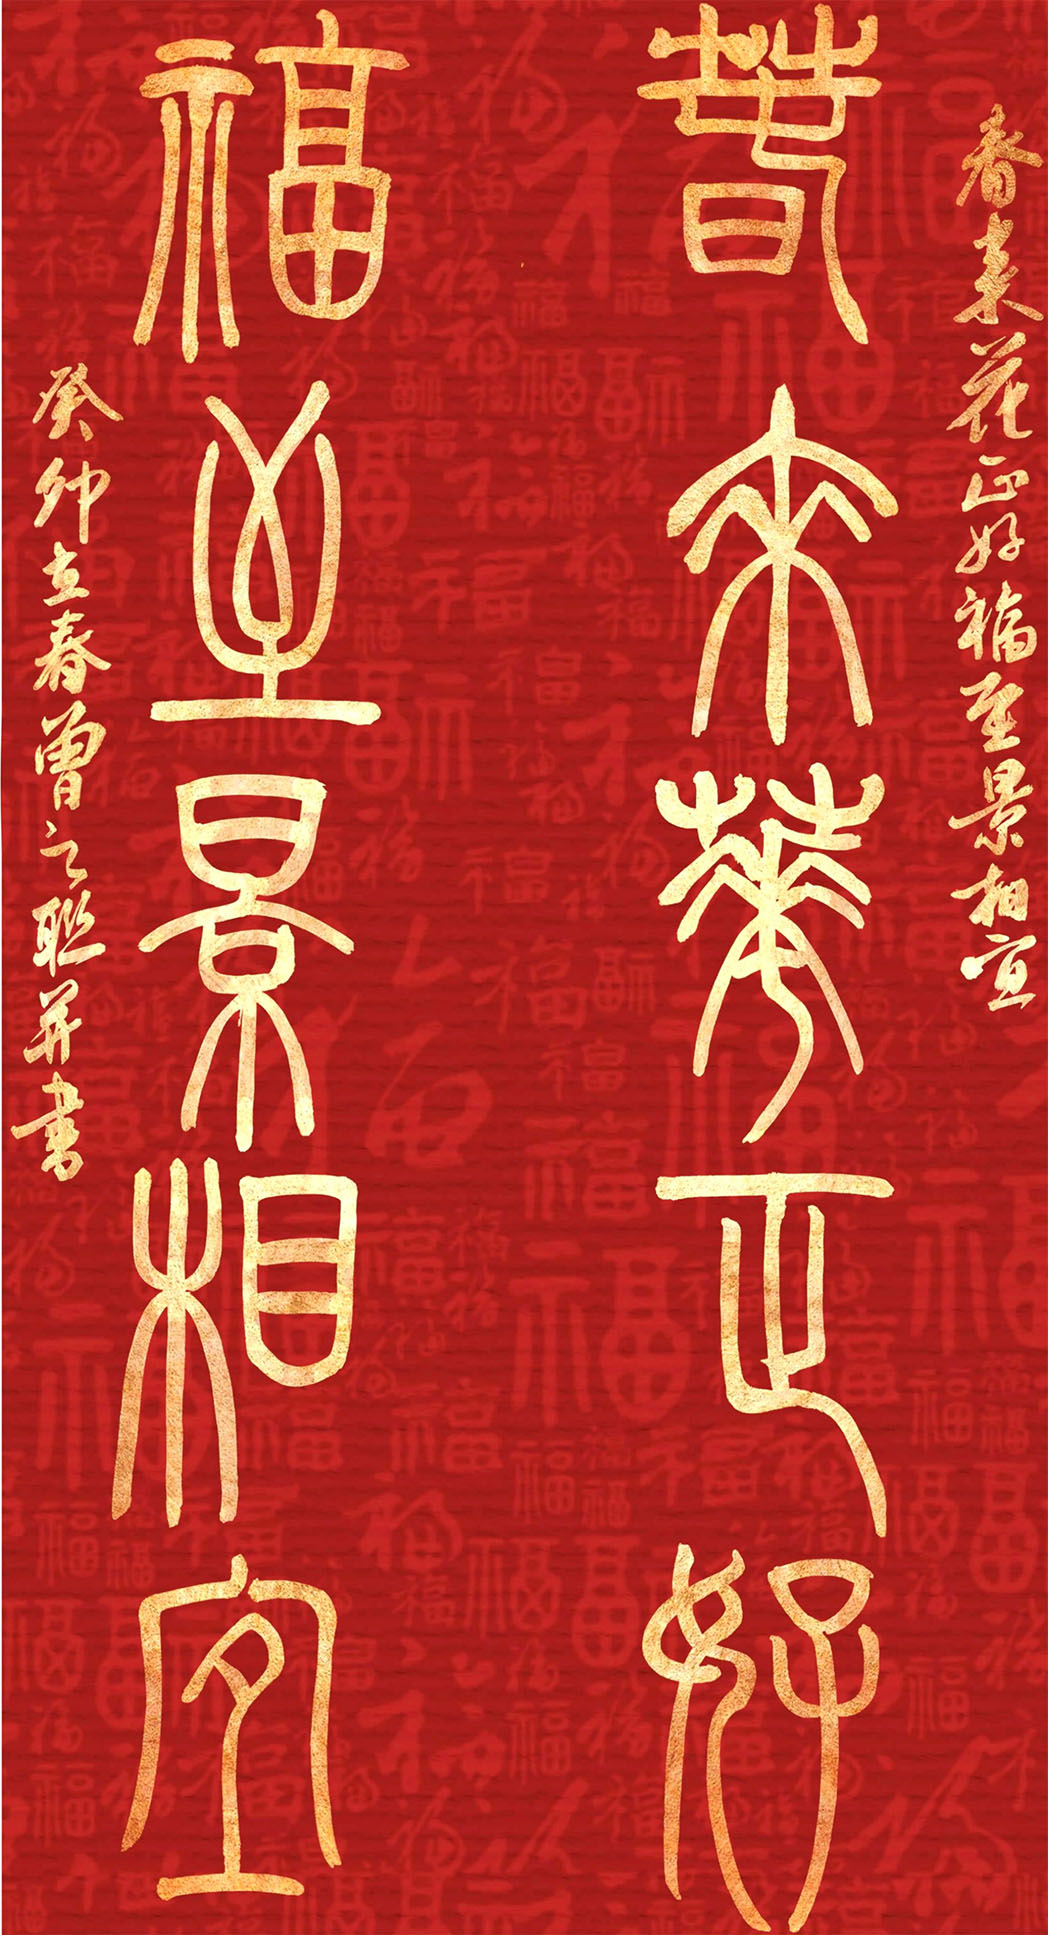 春来花正好福至景相宜
春来華正好
福至景相宜
癸卯立春曾之联并书